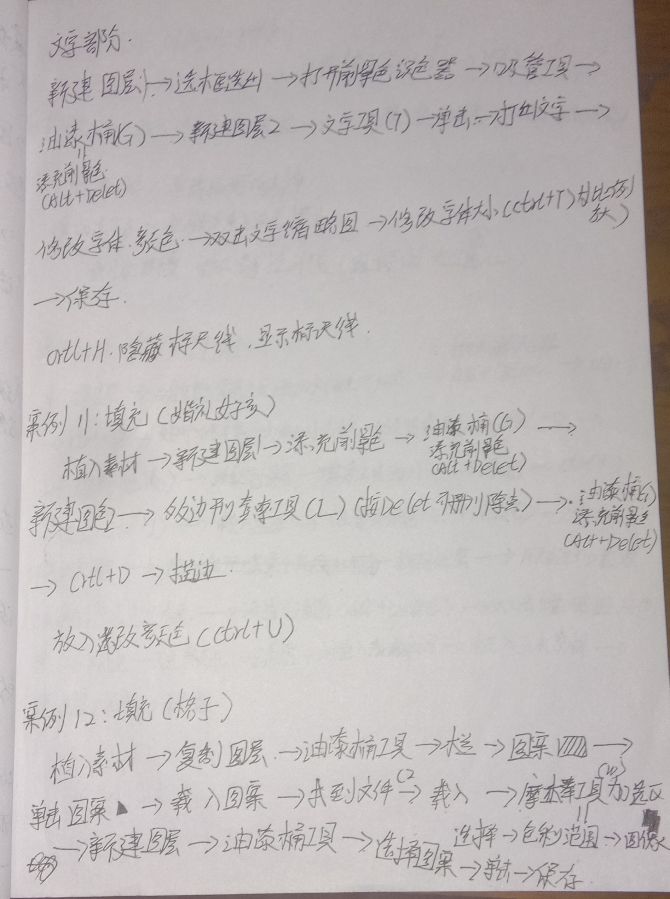 文字部分.
新建图层1→选框选出→打开前景色识色器→吸管工具→
油漆桶(G)→新建图层2→文字工具(T)→单击…打出文字→
添充前景色
(Alt+Delet)
修改字体.颜色.→双击文字缩略图→修改字体大小(Ctrl+T为比例
→保存.
Crtl+H.隐藏标尺线,显示标尺线.
案例11:填充(婚礼女孩)
植入素材→新建图层1→添充前景色→油漆桶(G)→
添充前景色
(Alt+Delet)
新建图2→多边形套索工具(L)(按Delet可删除点)→.油漆桶(G)
添充前景色
(Alt+Delet)
→Crtl+D→描边.
放入更改颜色(Ctrl+U)
案例12:填充(格子)
植入素材→复制图层.→油漆桶工具→栏→图案→
单击图案▲→载入图案→找到文件→载入→魔术棒工具(W)加选区
→新建图层→油漆桶工具→选择图案→单击→保存.
选择→色彩范围→